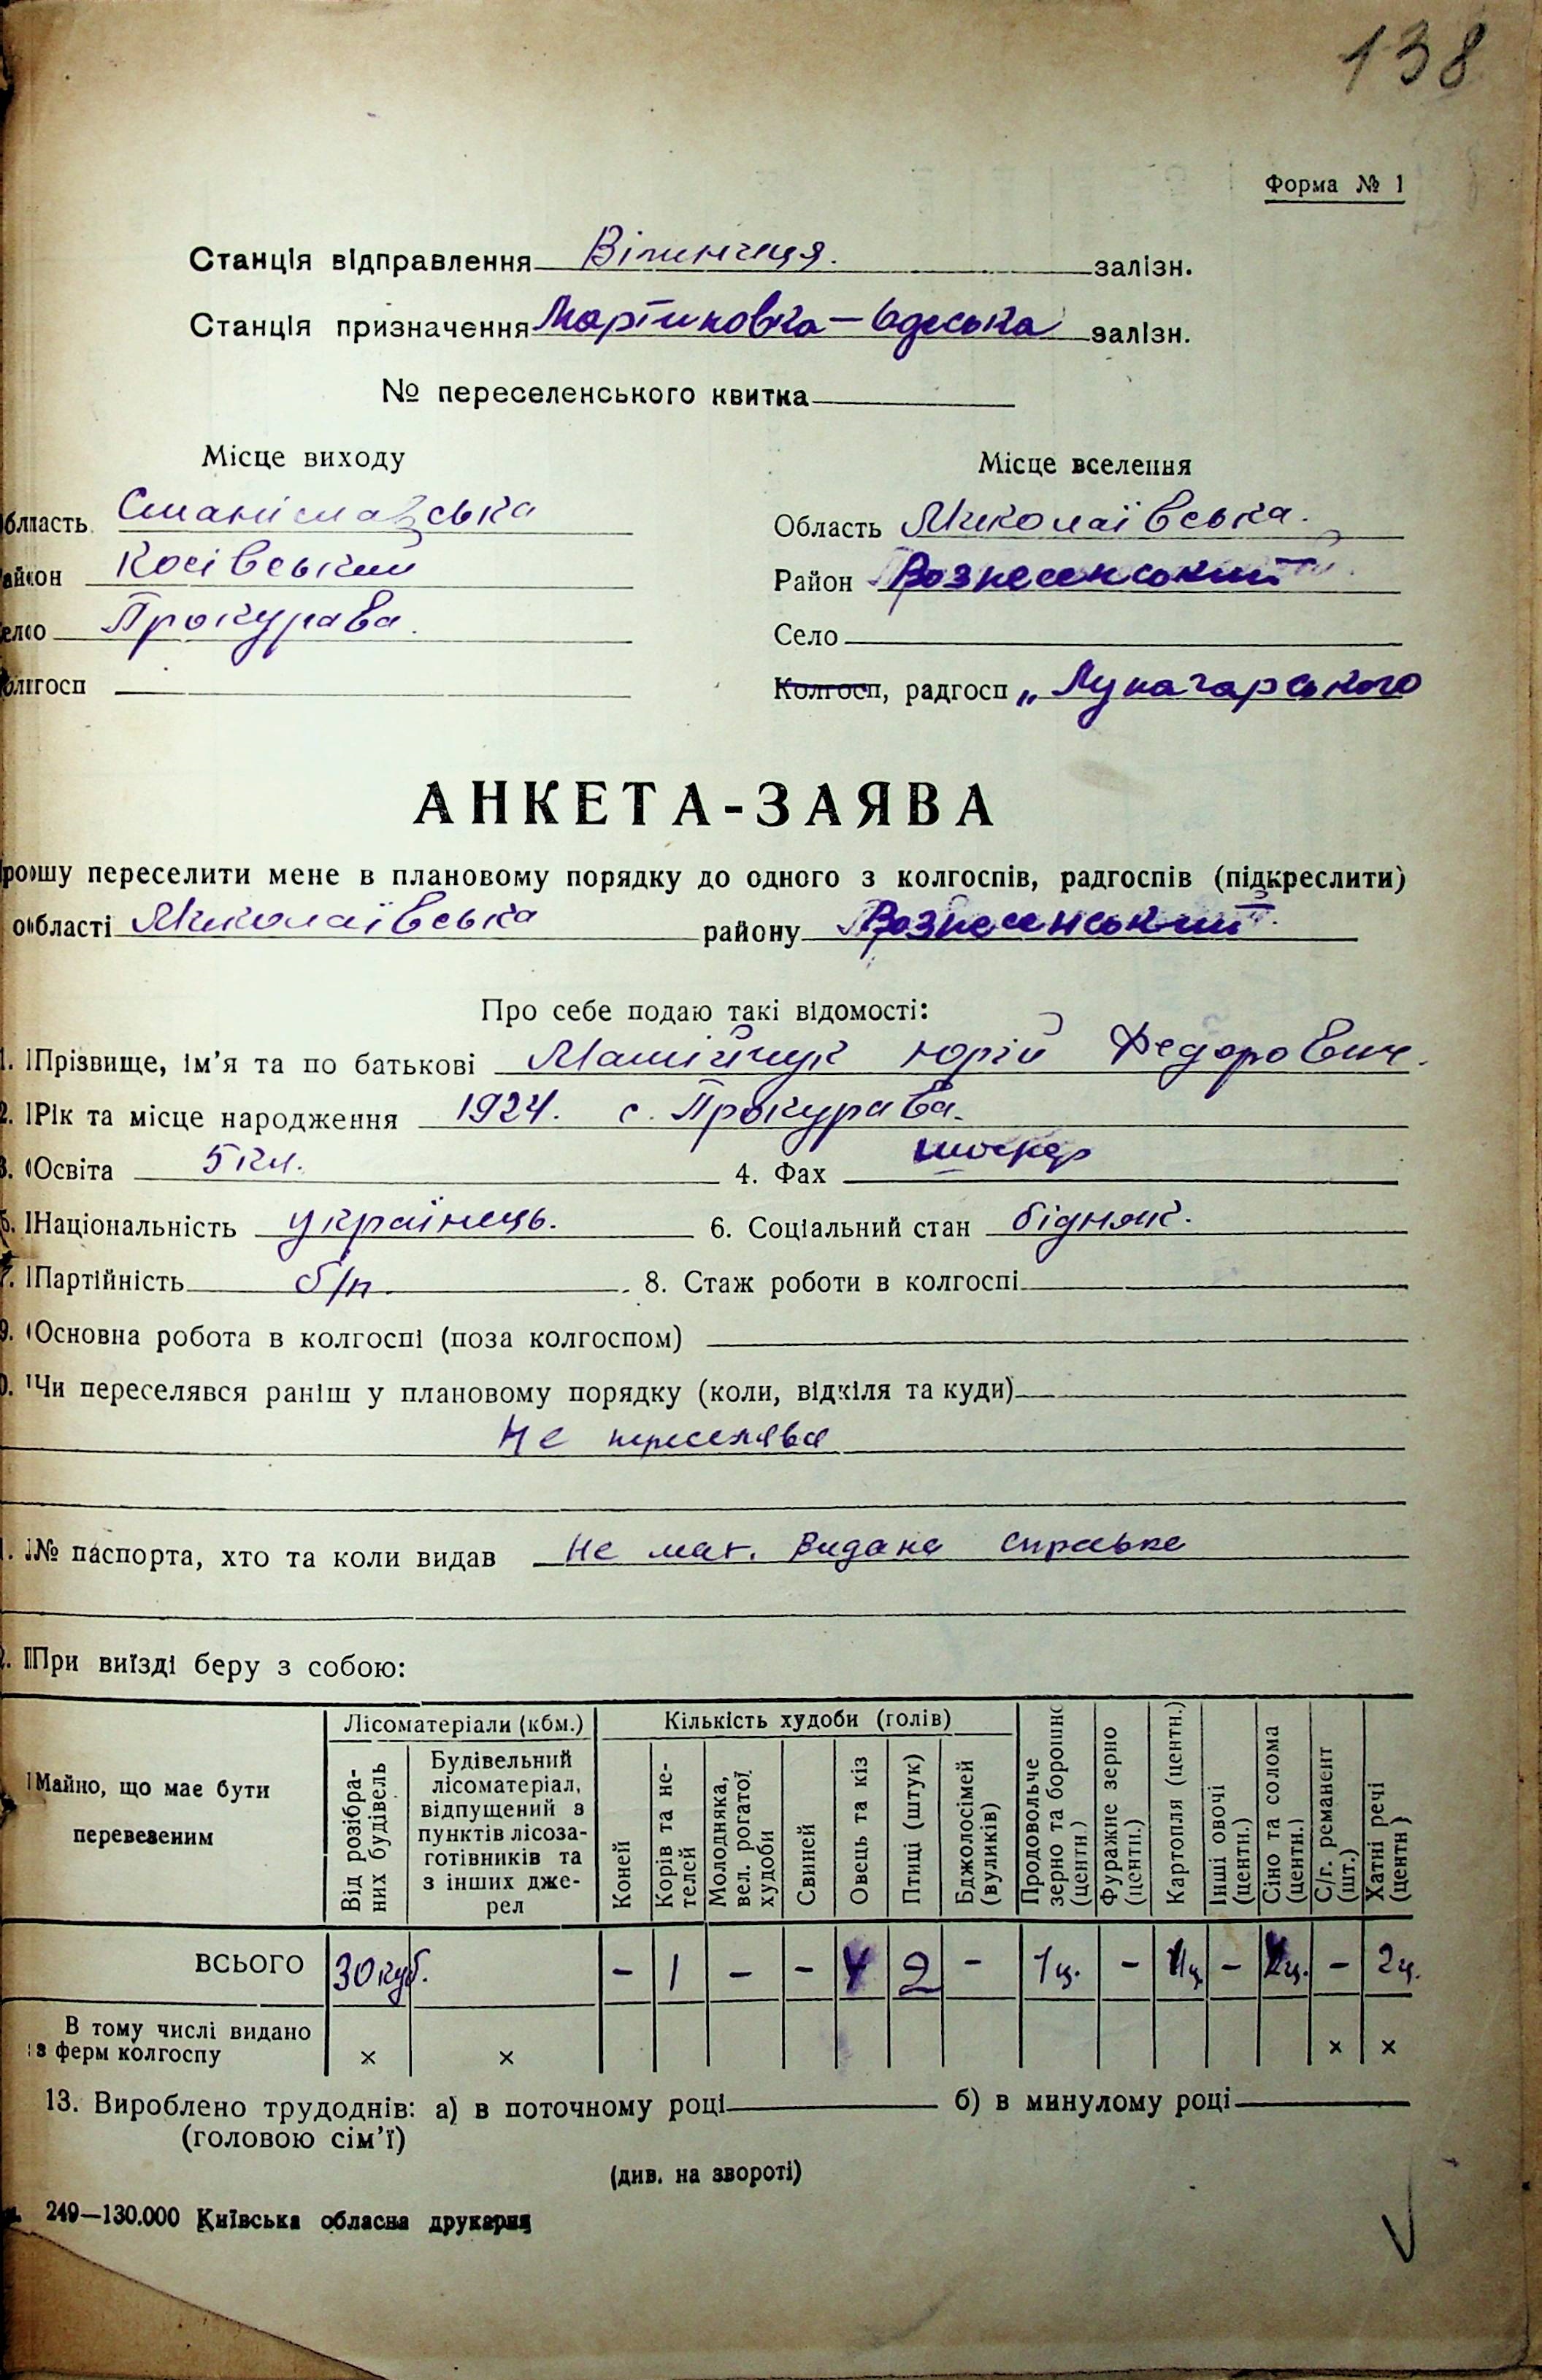 138
Форма № 1
Станція відправлення Вільниця. залізн.
Станція призначення Мартиновка–Одеська залізн.
№ переселенського квитка
Місце виходу
Місце вселення
бласть Станіславська
Область Миколаївська.
айон Косівський
Район Вознесенський
ело Прокурава.
Село
олгосп
Колгосп, радгосп „Луначарського
АНКЕТА-ЗАЯВА
рошу переселити мене в плановому порядку до одного з колгоспів, радгоспів (підкреслити)
області Миколаївська району Вознесенський
Про себе подаю такі відомості:
1. Прізвище, ім’я та по батькові Матійчук Юрій Федорович.
2. Рік та місце народження 1924. с. Прокурава.
3. Освіта 5 кл. 4. Фах
5. Національність українець. 6. Соціальний стан бідняк.
7. Партійність б/п. 8. Стаж роботи в колгоспі
9. Основна робота в колгоспі (поза колгоспом)
0. Чи переселявся раніш у плановому порядку (коли, відкіля та куди)
Не переселявся
1. № паспорта, хто та коли видав Не має. Видана справка
2. При виїзді беру з собою:
Майно, що має бути перевезеним
Лісоматеріали (кбм.)
Кількість худоби (голів)
Від розібраних будівель
Будівельний лісоматеріал, відпущений з пунктів лісозаготівників та з інших джерел
Коней
Корів та нетелей
Молодняка, вел. рогатої худоби
Свиней
Овець та кіз
Птиці (штук)
Бджолосімей (вуликів)
Продовольче зерно та борошно (центн.)
Фуражне зерно (центн.)
Картопля (центн.)
Інші овочі (центн.)
Сіно та солома (центн.)
С/г. реманент (шт.)
Хатні речі (центн)
ВСЬОГО 30 куб. – 1 – – 4 2 – 1ц. – 1ц – ц. – 2ц.
В тому числі видано з ферм колгоспу × × × ×
13. Вироблено трудоднів: а) в поточному році б) в минулому році
(головою сім’ї)
(див. на звороті)
249—130.000 Київська обласна друкарня